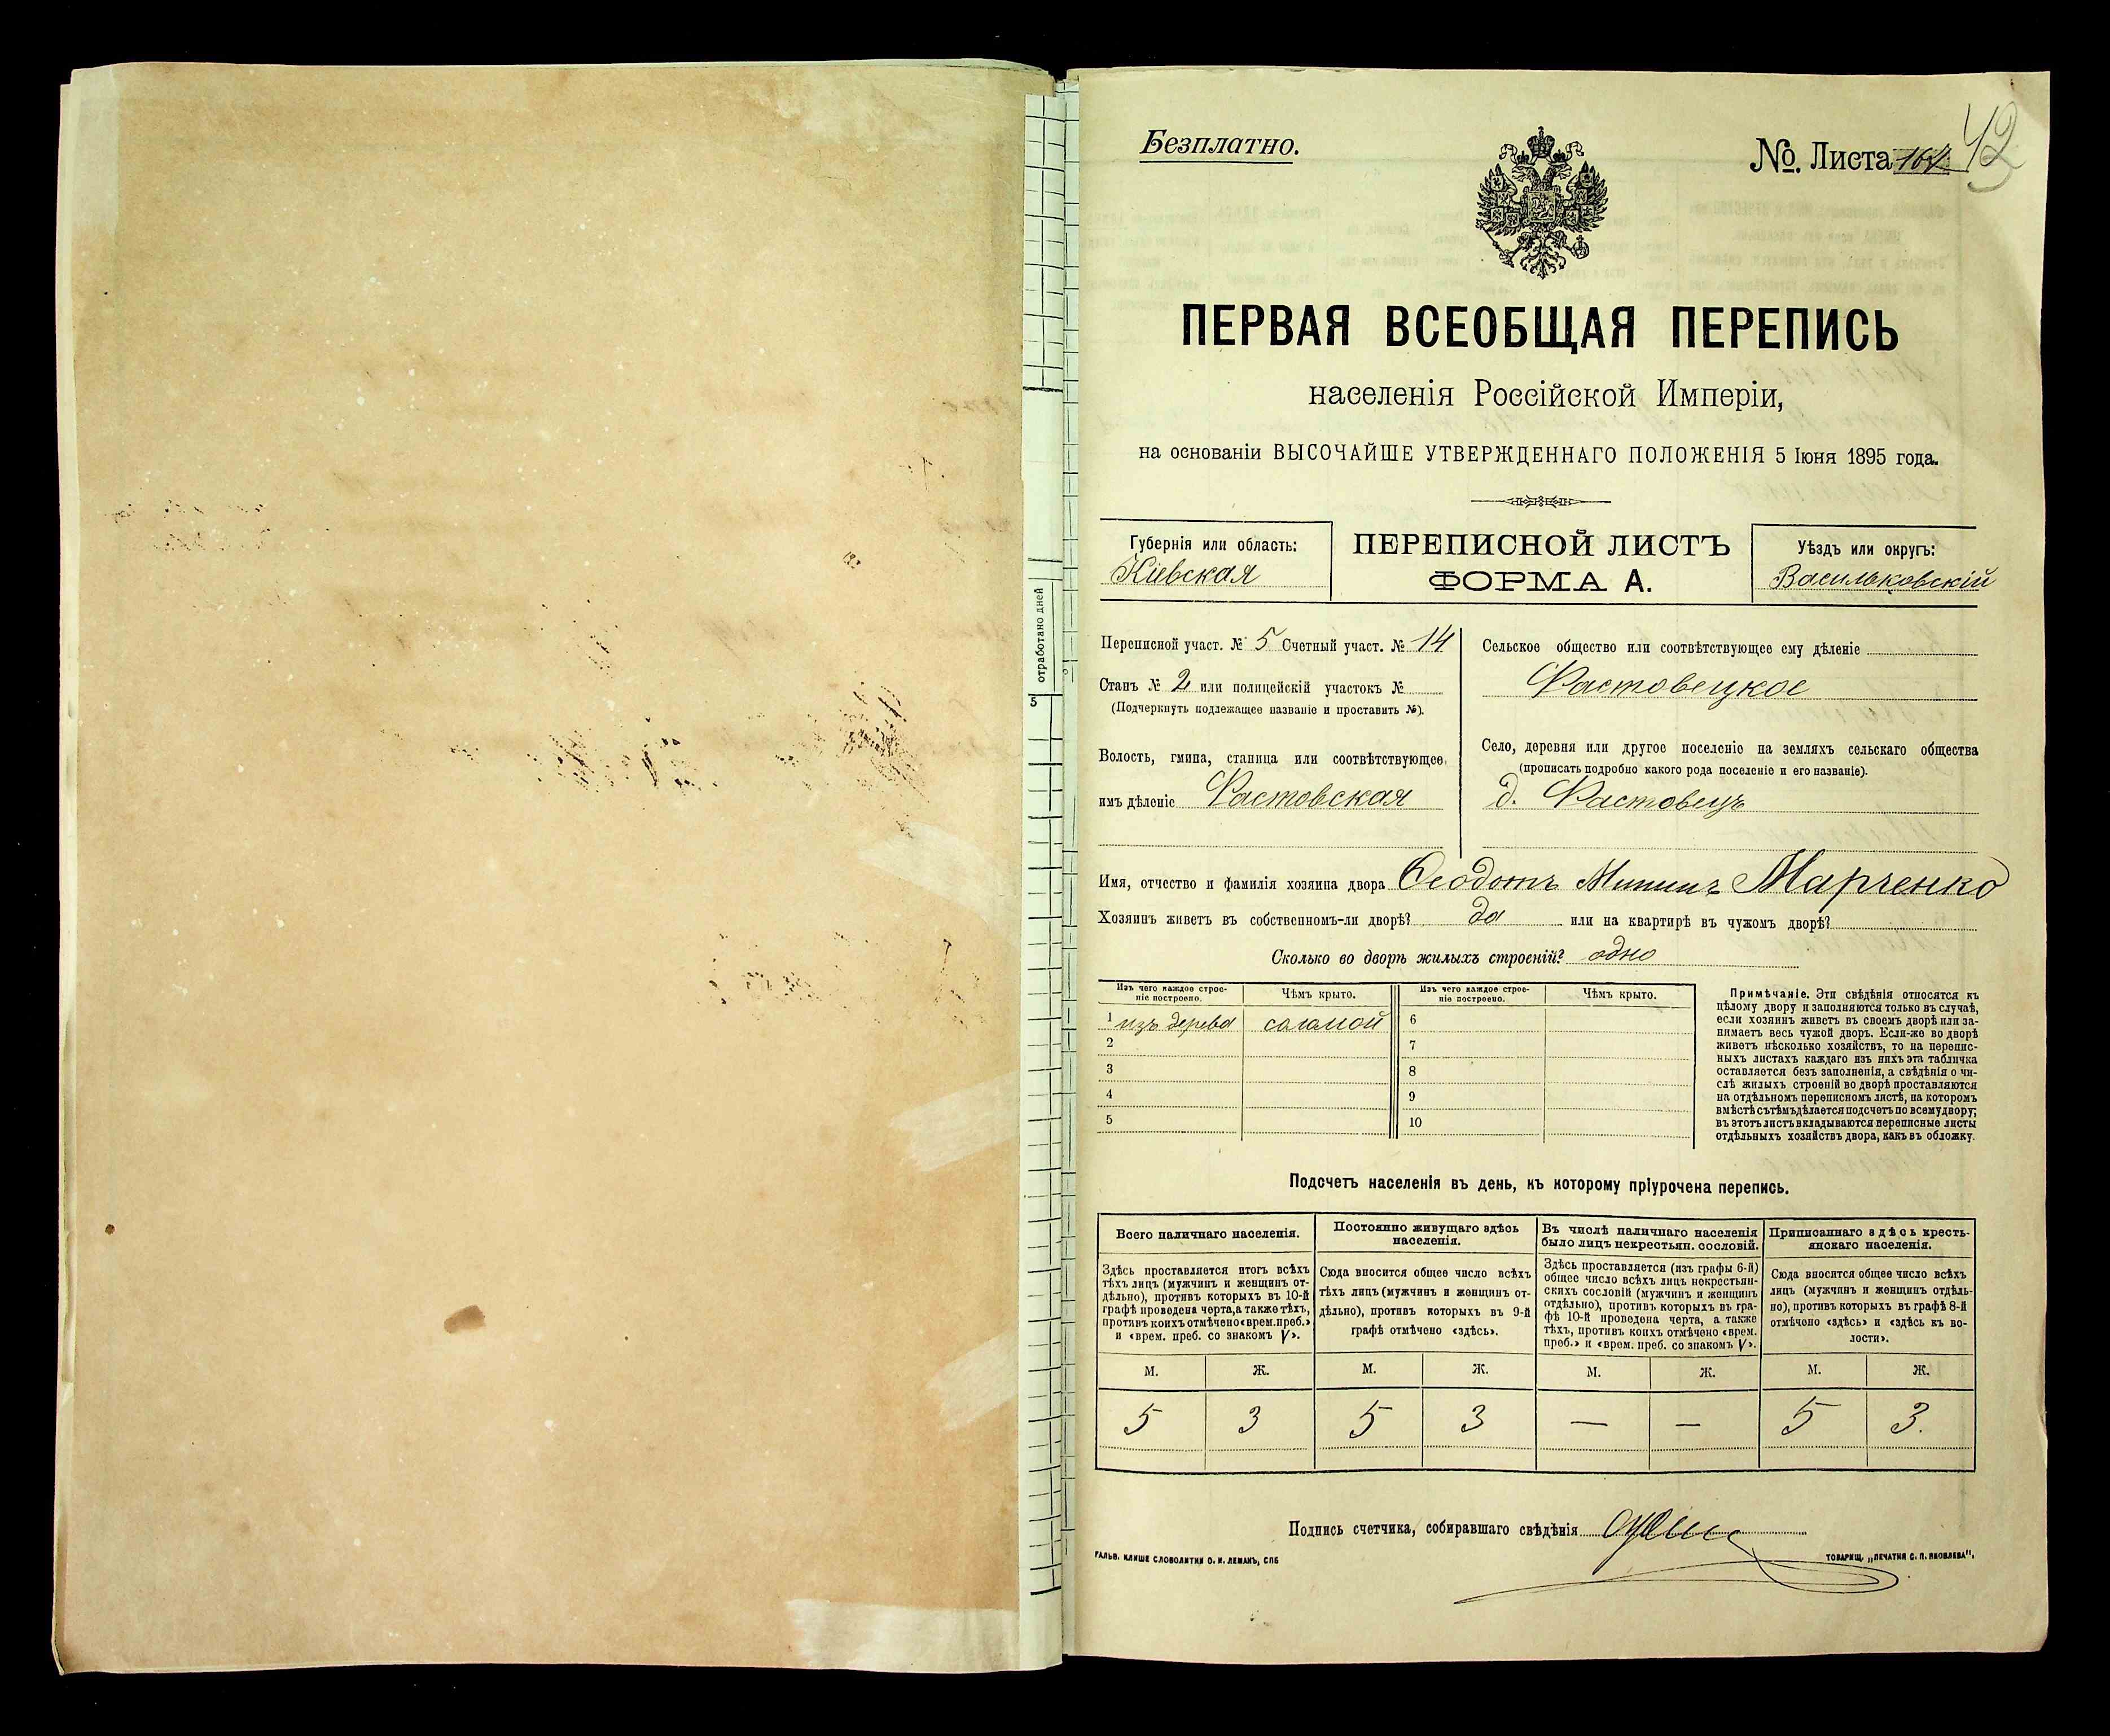 отработано дней
5
Безплатно.
№. Листа 164
42
ПЕРВАЯ ВСЕОБЩАЯ ПЕРЕПИСЬ
населенія Россійской Имперіи,
на основаніи ВЫСОЧАЙШЕ УТВЕРЖДЕННАГО ПОЛОЖЕНІЯ 5 Іюня 1895 года.
Губернія или область:
Кіевская
ПЕРЕПИСНОЙ ЛИСТЪ
ФОРМА А.
Уѣздъ или округъ:
Васильковскій
Переписной участ. № 5 Счетный участ. № 14
Станъ № 2 или полицейскій участокъ №
(Подчеркнуть подлежащее названіе и проставить №).
Волость, гмина, станица или соотвѣтствующее
имъ дѣленіе Фастовская
Сельское общество или соотвѣтствующее ему дѣленіе
Фастовецкое
Село, деревня или другое поселеніе на земляхъ сельскаго общества
(прописать подробно какого рода поселеніе и его названіе).
д. Фастовецъ
Имя, отчество и фамилія хозяина двора Ѳеодотъ Мининъ Марченко
Хозяинъ живетъ въ собственномъ-ли дворѣ? да или на квартирѣ въ чужомъ дворѣ?
Сколько во дворѣ жилыхъ строеній? одно
Изъ чего каждое строе-
ніе построено.
Чѣмъ крыто.
Изъ чего каждое строе-
ніе построено.
Чѣмъ крыто.
1 изъ дерева соломой 6
2 7
3 8
4 9
5 10
Примѣчаніе. Эти свѣдѣнія относятся къ
цѣлому двору и заполняются только въ случаѣ,
если хозяинъ живетъ въ своемъ дворѣ или за-
нимаетъ весь чужой дворъ. Если-же во дворѣ
живетъ нѣсколько хозяйствъ, то на перепис-
ныхъ листахъ каждаго изъ нихъ эта табличка
оставляется безъ заполненія, а свѣдѣнія о чи-
слѣ жилыхъ строеній во дворѣ проставляются
на отдѣльномъ переписномъ листѣ, на которомъ
вмѣстѣ съ тѣмъ дѣлается подсчетъ по всему двору;
въ этотъ листъ вкладываются переписные листы
отдѣльныхъ хозяйствъ двора, какъ въ обложку.
Подсчетъ населенія въ день, къ которому пріурочена перепись.
Всего наличнаго населенія.
Постоянно живущаго здѣсь
населенія.
Въ числѣ наличнаго населенія
было лицъ некрестьян. сословій.
Приписаннаго здѣсь кресть-
янскаго населенія.
Здѣсь проставляется итогъ всѣхъ
тѣхъ лицъ (мужчинъ и женщинъ от-
дѣльно), противъ которыхъ въ 10-й
графѣ проведена черта, а также тѣхъ,
противъ коихъ отмѣчено «врем. преб.»
и «врем. преб. со знакомъ V».
Сюда вносится общее число всѣхъ
тѣхъ лицъ (мужчинъ и женщинъ от-
дѣльно), противъ которыхъ въ 9-й
графѣ отмѣчено «здѣсь».
Здѣсь проставляется (изъ графы 6-й)
общее число всѣхъ лицъ некрестьян-
скихъ сословій (мужчинъ и женщинъ
отдѣльно), противъ которыхъ въ гра-
фѣ 10-й проведена черта, а также
тѣхъ, противъ коихъ отмѣчено «врем.
преб.» и «врем. преб. со знакомъ V».
Сюда вносится общее число всѣхъ
лицъ (мужчинъ и женщинъ отдѣль-
но), противъ которыхъ въ графѣ 8-й
отмѣчено «здѣсь» и «здѣсь въ во-
лости».
М. Ж. М. Ж. М. Ж. М. Ж.
5 3 5 3 — — 5 3.
Подпись счетчика, собиравшаго свѣдѣнія
ГАЛЬВ. КЛИШЕ СЛОВОЛИТНИ О. И. ЛЕМАНЪ, СПБ
ТОВАРИЩ. „ПЕЧАТНЯ С. П. ЯКОВЛЕВА".